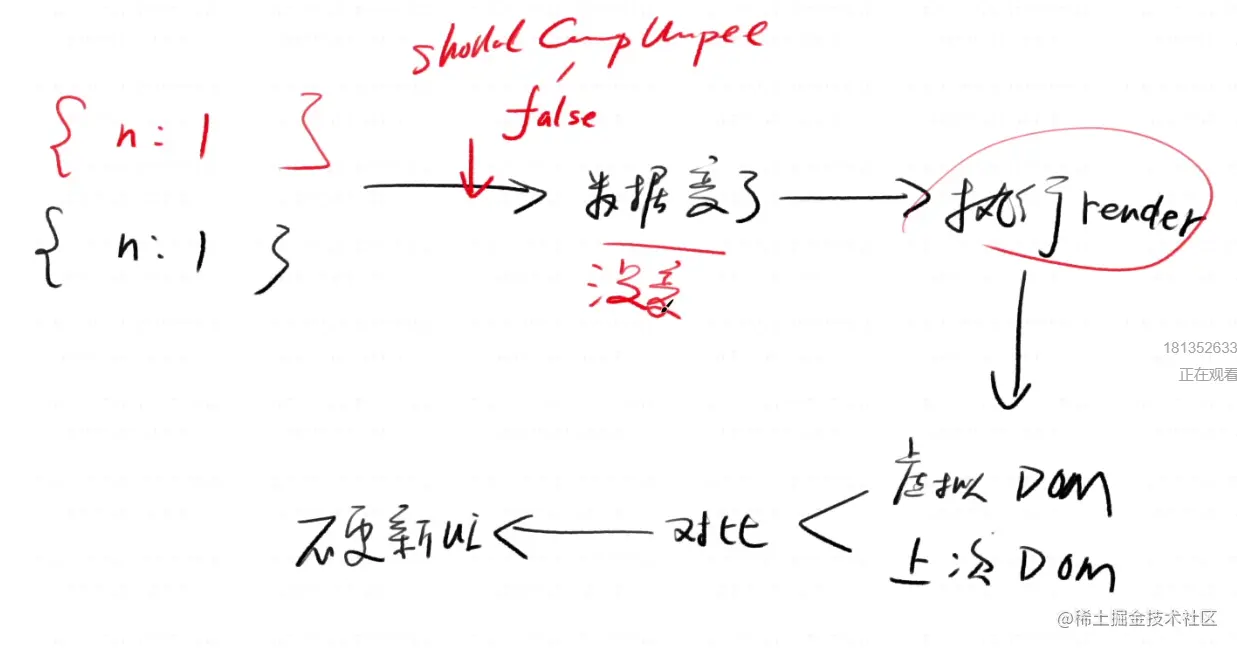 false
{ n: 1 }
数据变了
执行render
{ n: 1 }
没变
181352633
正在观看
虚拟 DOM
不更新ui
对比
上次 DOM
@稀土掘金技术社区